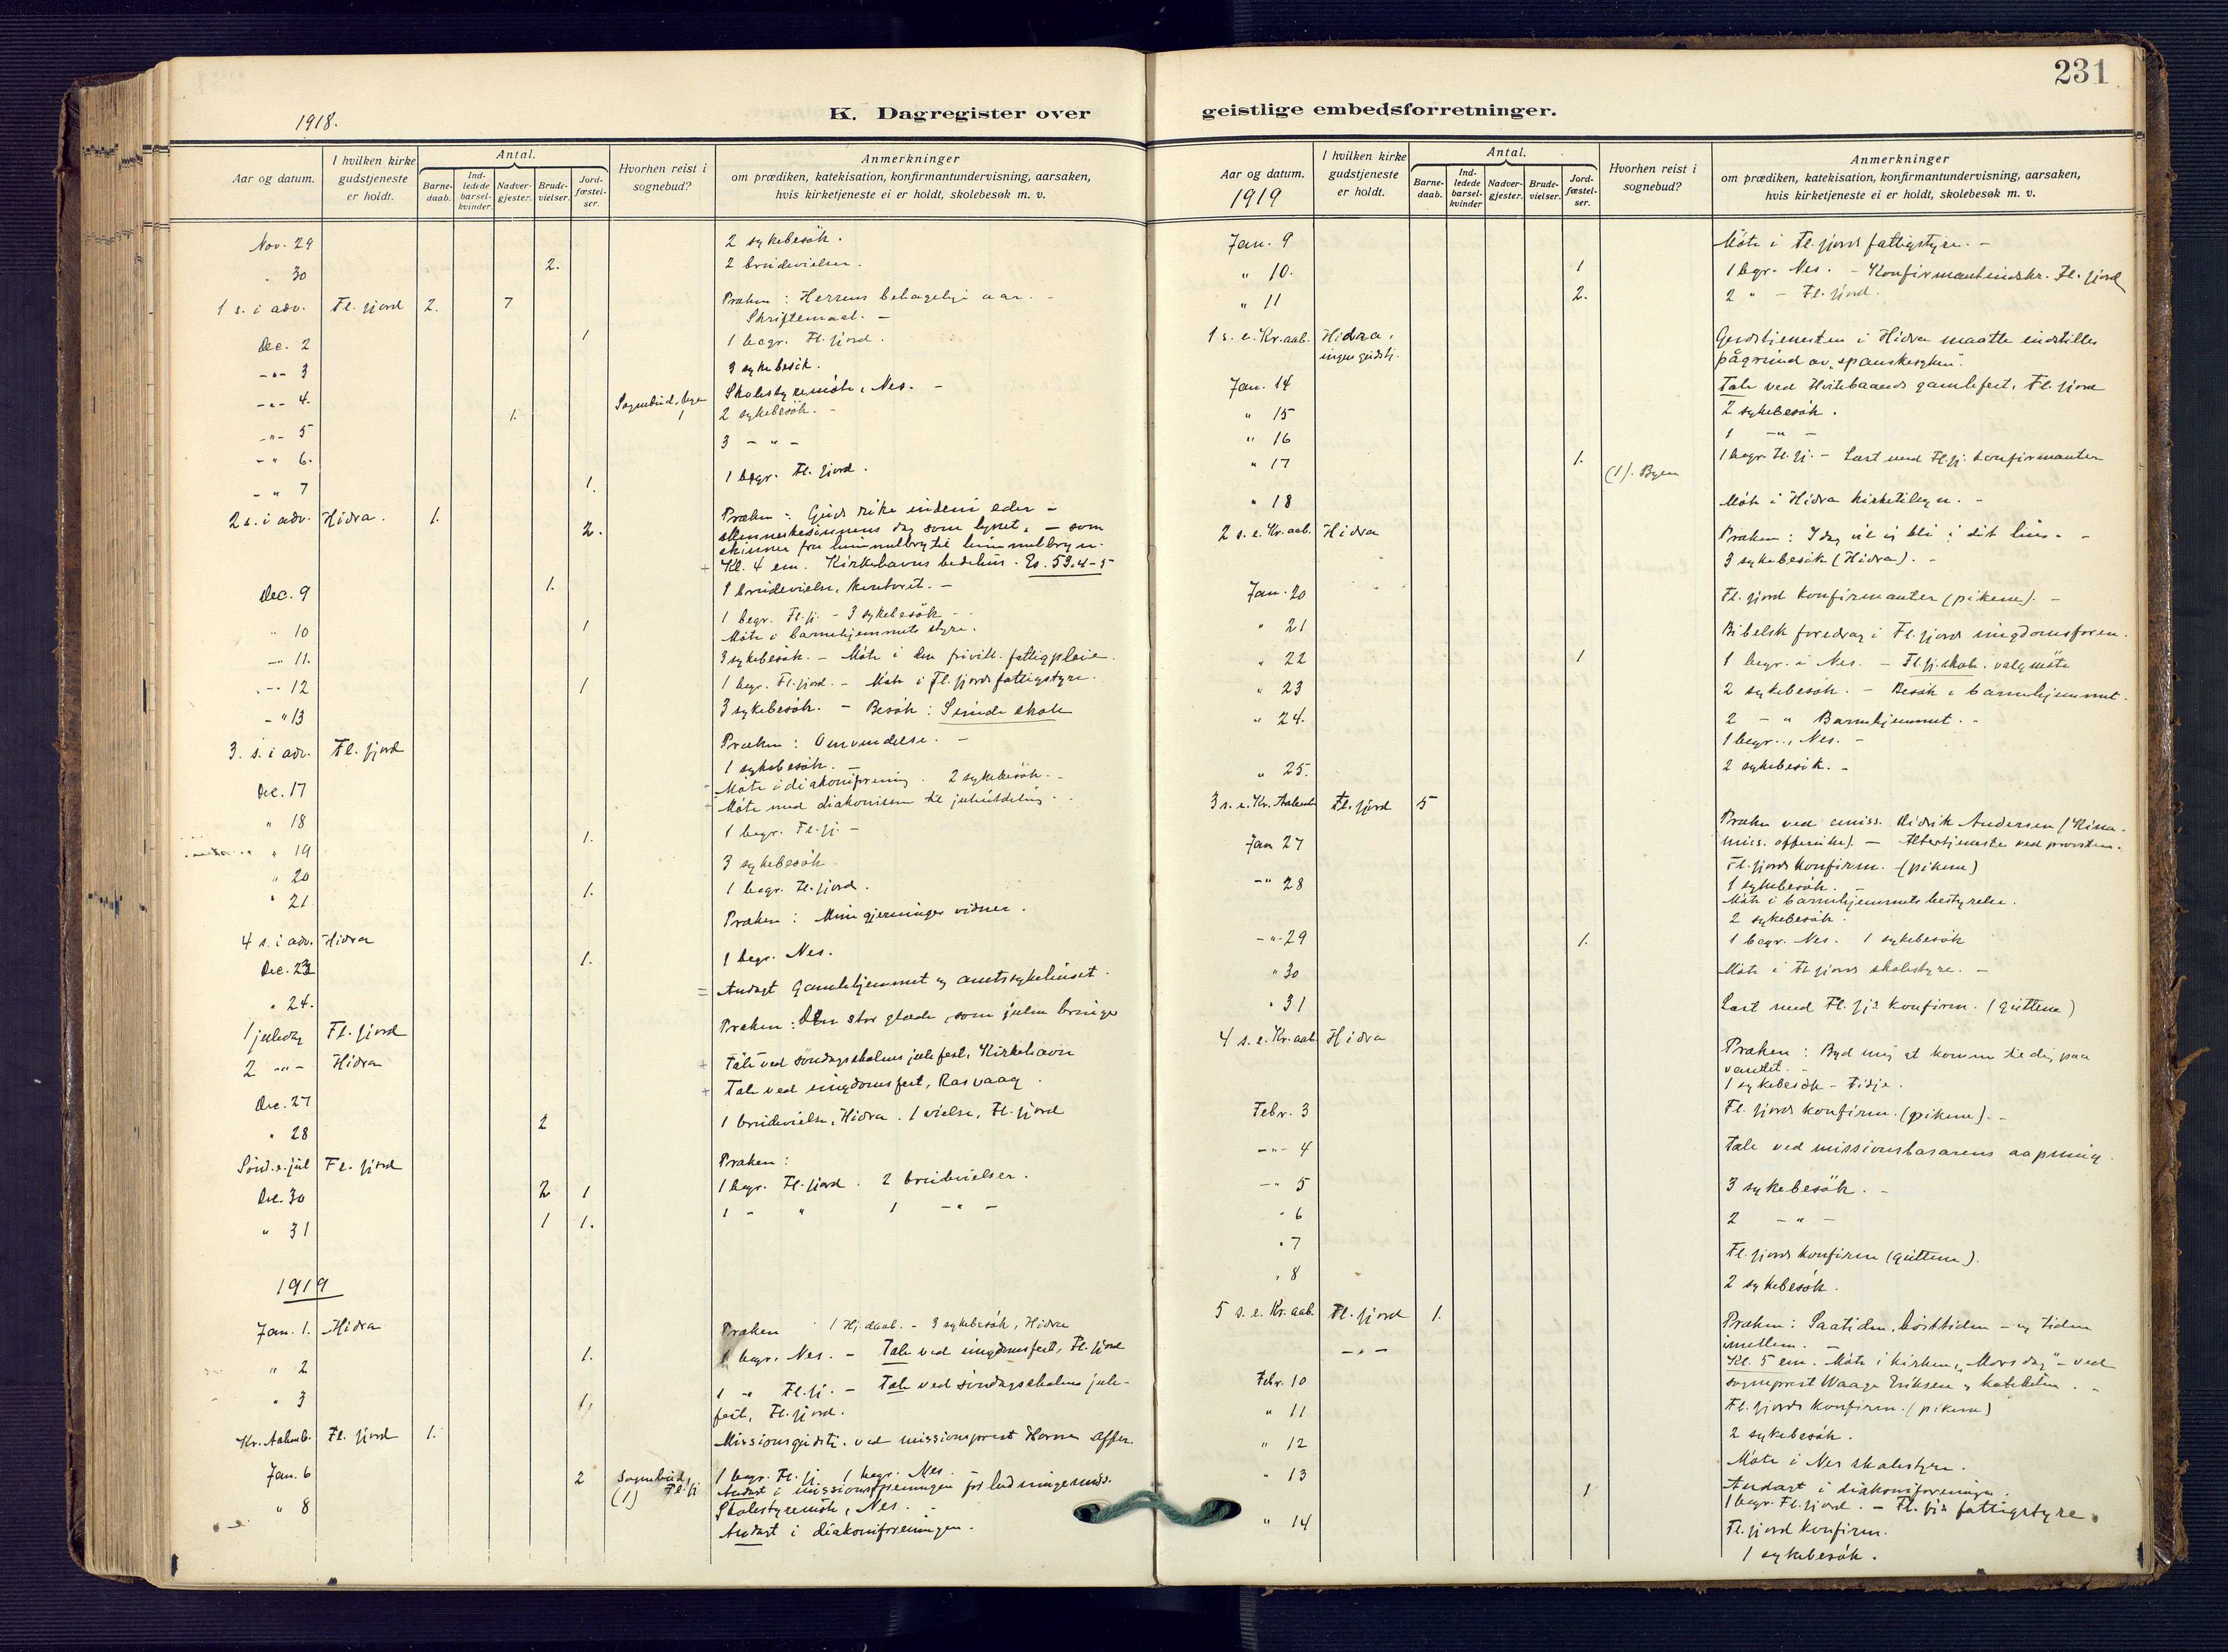 231
K. Dagregister over geistlige embedsforretninger.
1918.
Aar og datum.
I hvilken kirke gudstjeneste er holdt.
Antal.
Barne-daab.
Ind-ledede barsel-kvinder
Nadver-gjester.
Brude-vielser.
Jord-fæstel-ser.
Hvorhen reist i sognebud?
Anmerkninger
om prædiken, katekisation, konfirmantundervisning, aarsaken,
hvis kirketjeneste ei er holdt, skolebesøk m. v.
Nov. 29 2 sykebesök.
" 30 2. 2 brudevielser.
1 s. i adv. Fl. fjord 2. 7 Præken: Herrens behagelige aar. -
Skriftemaal. -
Dec. 2 1 1 begr. Fl. fjord.
-"- 3 3 sykebesök.
-"- 4. Sognebud, byen Skolestyremöte, Nes. -
1. 1 2 sykebesök. -
-"- 5 3 - " -
-" 6.
-" 7 1. 1 begr. Fl. fjord.
2 s. i adv. Hidra. 1. 2. Præken: Guds rike indeni eder -
Menneskesönnens dag som lynet, - som
skinner fra himmelbryn til himmelbryn.
Kl. 4 em. Kirkehavns bedehus. Es. 53.4-5
Dec. 9 1. 1 brudevielse, kontoret. -
" 10 1 1 begr. Fl. fj. - 3 sykebesök -
Möte i barnehjemmets styre.
-" 11. 3 sykebesök. - Möte i den frivill. fattigpleie.
-"- 12 1 1 begr. Fl. fjord. - Möte i Fl. fjords fattigstyre.
-" 13 3 sykebesök. - Besök: Sunde skole
3. s. i adv. Fl. fjord Præken: Omvendelse. -
1 sykebesök. -
Dec. 17 Möte i diakoniforening. 2 sykebesök. -
Möte med diakonissen til juleutdeling.
" 18 1. 1 begr. Fl. fj. -
" 19 3 sykebesök
" 20 1. 1 begr. Fl. fjord.
" 21
4 s. i adv. Hidra Præken: Mine gjerninger vidner.
Dec. 23 1. 1 begr. Nes.
" 24. Andagt Gamlehjemmet og amtssykehuset.
1 juledag Fl. fjord Præken: Den store glæde, som julen bringer
2 -"- Hidra Tale ved söndagsskolens julefest, Kirkehavn
Dec. 27 Tale ved ungdomsfest, Rasvaag.
" 28 2 1 brudevielse, Hidra. 1 vielse, Fl. fjord
Sönd. e. jul Fl. fjord Præken:
Dec. 30 2 1 1 begr. Fl. fjord. 2 brudevielser.
" 31 1 1. 1 - " 1 - " -
1919
Jan. 1. Hidra Præken 1 Hj. daab. - 3 sykebesök, Hidra
" 2 1. 1 begr. Nes. - Tale ved ungdomsfest, Fl. fjord
" 3 1. 1 " Fl. fj. - Tale ved söndagsskolens jule-
fest, Fl. fjord.
Kr. Aabenb. Fl. fjord 1. Missionsgudstj. ved missionsprest Offer.
Jan. 6 2 Sognebud, (1) Fl. fj 1 begr. Fl. fj. 1 begr. Nes.
Andagt i missionsforeningen
" 8 Skolestyremöte, Nes. -
Andagt i diakoniforeningen.
Aar og datum.
1919
I hvilken kirke gudstjeneste er holdt.
Antal.
Barne-daab.
Ind-ledede barsel-kvinder
Nadver-gjester.
Brude-vielser.
Jord-fæstel-ser.
Hvorhen reist i sognebud?
Anmerkninger
om prædiken, katekisation, konfirmantundervisning, aarsaken,
hvis kirketjeneste ei er holdt, skolebesøk m. v.
Jan. 9 Möte i Fl. fjords fattigstyre. -
" 10. 1 1 begr. Nes. - Konfirmantindskr. Fl. fjord
" 11 2. 2 " - Fl. fjord.
1 s. e. Kr. aab. Hidra, ingen gudstj. Gudstjenesten i Hidra maatte indstilles
pågrund av "spanskesyken".
Jan. 14 Tale ved Hvitebaands gamlefest, Fl. fjord
" 15 2 sykebesök.
" 16 1 -"-
" 17 1. (1). Byen 1 begr. Fl. fj. - Læst med Fl. fj. konfirmanter
" 18 Möte i Hidra kirketilsyn. -
2 s. e. Kr. aab. Hidra Præken: Idag vil jeg bli i dit hus. -
3 sykebesök (Hidra). -
Jan. 20 Fl. fjord konfirmanter (pikene). -
" 21 Bibelsk foredrag i Fl. fjords ungdomsforen.
" 22 1 1 begr. i Nes. - Fl. fj. skole. valgmöte
" 23 2 sykebesök. - Besök i barnehjemmet.
" 24. 2 - " Barnehjemmet. -
1 begr., Nes. -
" 25. 2 sykebesök. -
3 s. e. Kr. Aabenb. Fl. fjord 5 Præken ved emiss. Didrik Andersen (Kina-
miss. offeruke). - Altertjeneste ved provsten.
Jan 27 Fl. fjords konfirm. (pikene)
-" 28 1 sykebesök. -
Möte i barnehjemmets bestyrelse.
2 sykebesök.
-"- 29 1. 1 begr. Nes. 1 sykebesök
" 30 Möte i Fl. fjords skolestyre. -
" 31 Læst med Fl. fjs konfirm. (guttene)
4 s. e. Kr. aab. Hidra Præken: Byd mig at komme til dig paa
vandet. -
1 sykebesök - Eidje.
Febr. 3 Fl. fjords konfirm. (pikene). -
-"- 4 Tale ved missionsbasarens aapning.
-" 5 3 sykebesök. -
" 6 2 - " -
" 7 Fl. fjords konfirm (guttene).
" 8 2 sykebesök.
5 s. e. Kr. aab. Fl. fjord 1. Præken: Saatiden, hösttiden - og tiden
imellem. -
-"- Kl. 5 em. Möte i kirken, "Mors dag" - ved
sogneprest Waage Eriksen og kateketen. -
Febr. 10 Fl. fjords konfirm. (pikene)
" 11 2 sykebesök.
" 12 Möte i Nes skolestyre.
" 13 1 Andagt i diakoniforeningen.
1 begr. Fl. fjord. - Fl. fjs fattigstyre.
" 14 Fl. fjord konfirm.
1 sykebesök.